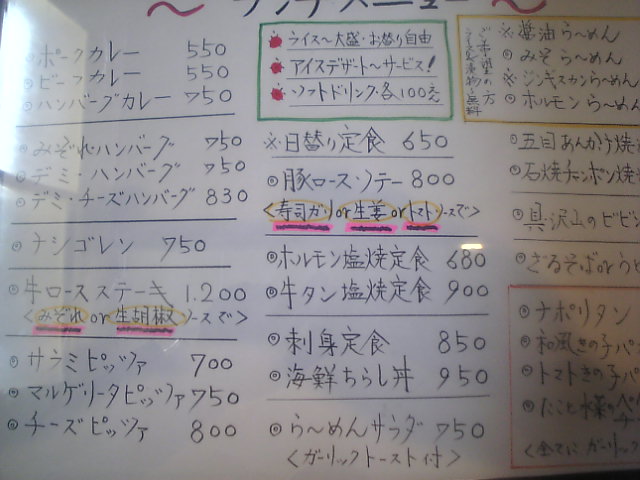 ～ランチメニュー～
◎ポークカレー 550
◎ビーフカレー 550
◎ハンバーグカレー 750
◎みぞれ・ハンバーグ 750
◎デミ・ハンバーグ 750
◎デミ・チーズハンバーグ 830
◎ナシゴレン 750
◎牛ロースステーキ 1.200
<みぞれor生胡椒ソースで>
◎サラミピッツァ 700
◎マルゲリータピッツァ 750
◎チーズピッツァ 800
ライス～大盛・お替り自由
アイスデザート～サービス!
ソフトドリンク・各100元
※日替り定食 650
◎豚ロースソテー 800
<寿司ガリor生姜orトマトソースで>
◎ホルモン塩焼定食 680
◎牛タン塩焼定食 900
◎刺身定食 850
◎海鮮ちらし丼 950
◎らーめんサラダ 750
<ガーリックトースト付>
ご希望の方
※醤油らーめん
◎みそらーめん
※ジンギスカンらーめん
◎ホルモンらーめん
◎五目あんかけ焼
◎石焼チャンポン焼
◎具・沢山のビビン
◎ざるそばorうど
◎ナポリタン
◎和風きの子パ
◎トマトきの子パ
<全てにガーリック